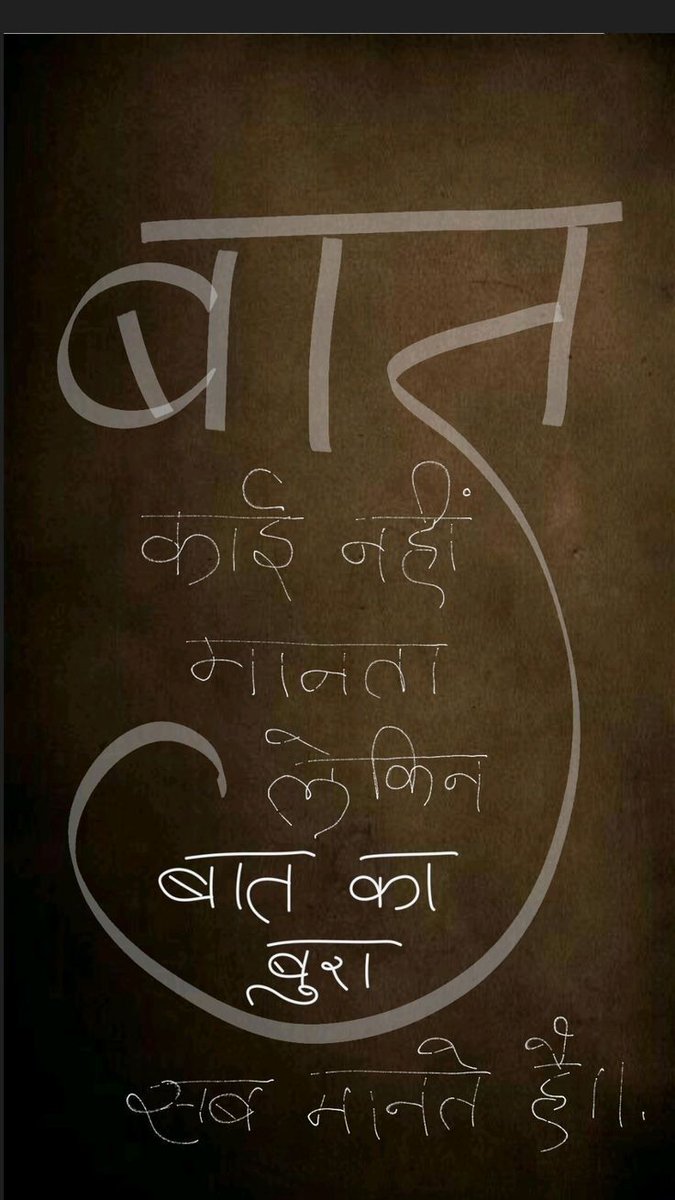 बात
काई नहीं
मानता
लेकिन
बात का
बुरा
सब मानते है।।.